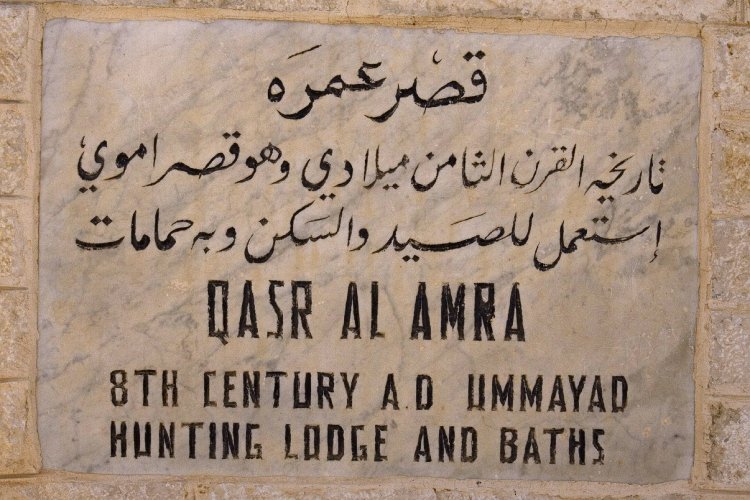 قصر عمره
تاريخه القرن الثامن ميلادي وهو قصر اموي
إستعمل للصيد والسكن وبه حمامات
QASR AL AMRA
8TH CENTURY A.D UMMAYAD
HUNTING LODGE AND BATHS